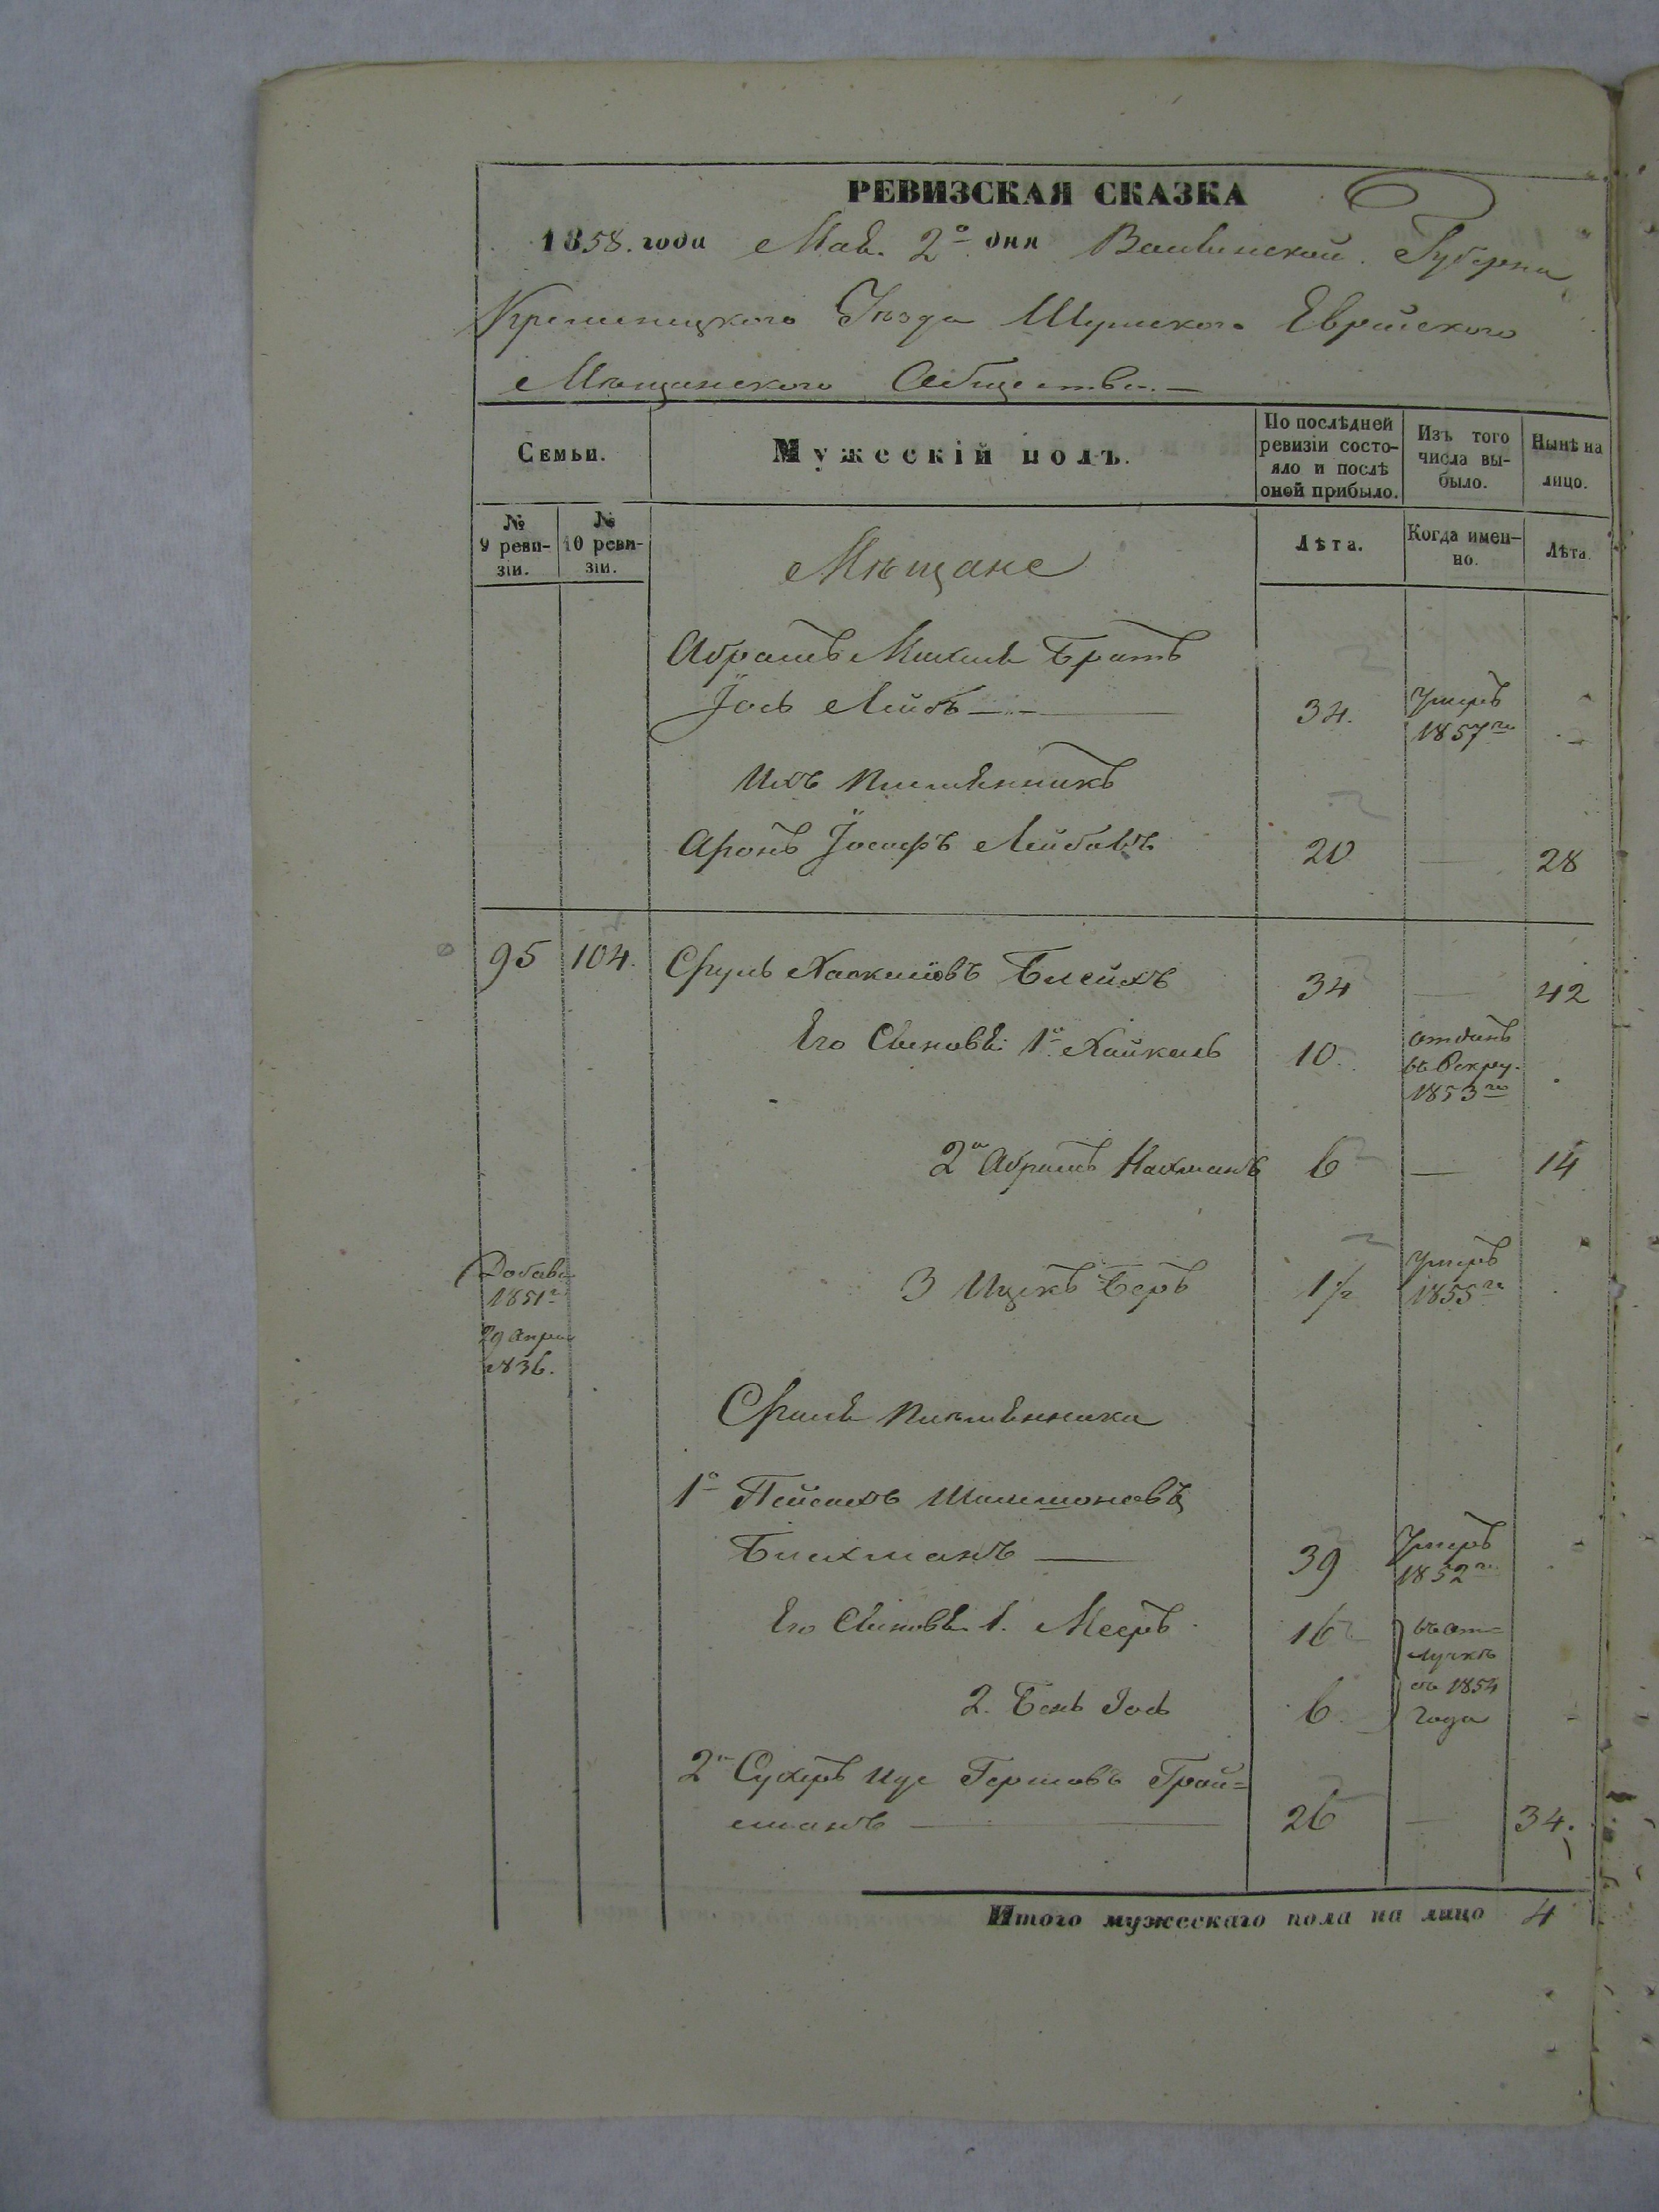 РЕВИЗСКАЯ СКАЗКА
1858. года Мая 2о дня Волынской Губерни
Кременецкого Уѣзда Шумского Еврейского
Мѣщанского Общества.
Семьи.
Мужескій полъ.
По послѣдней ревизіи состояло и послѣ оной прибыло.
Изъ того числа выбыло.
Нынѣ на лицо.
№ 9 ревизіи.
№ 10 ревизіи.
Мѣщане
Лѣта.
Когда именно.
Лѣта.
Абрамъ Братъ
Іось Лейбъ 34. Умеръ 1857го
Ихъ племянникъ
Аронъ Іосифъ Лейбовъ 20 — 28
95 104. Сруль Блейхъ 34 — 42
Его Сыновья 1о Хайкель 10. отданъ въ Рекру. 1853го
2й Абрамъ Нахманъ 6 — 14
Добавл. 1851г 29 Апреля №36.
3 Ицикъ Беръ 1/2 Умеръ 1855го
Сруля племянники
1о Пейсахъ
39 Умеръ 1852го
Его Сыновья 1. Мееръ 16 въ отлучкѣ
2. Бень Іось 6. съ 1854 Года
2й Сухеръ Иде Гершовъ Грой=
сманъ — 26 — 34.
Итого мужескаго пола на лицо 4